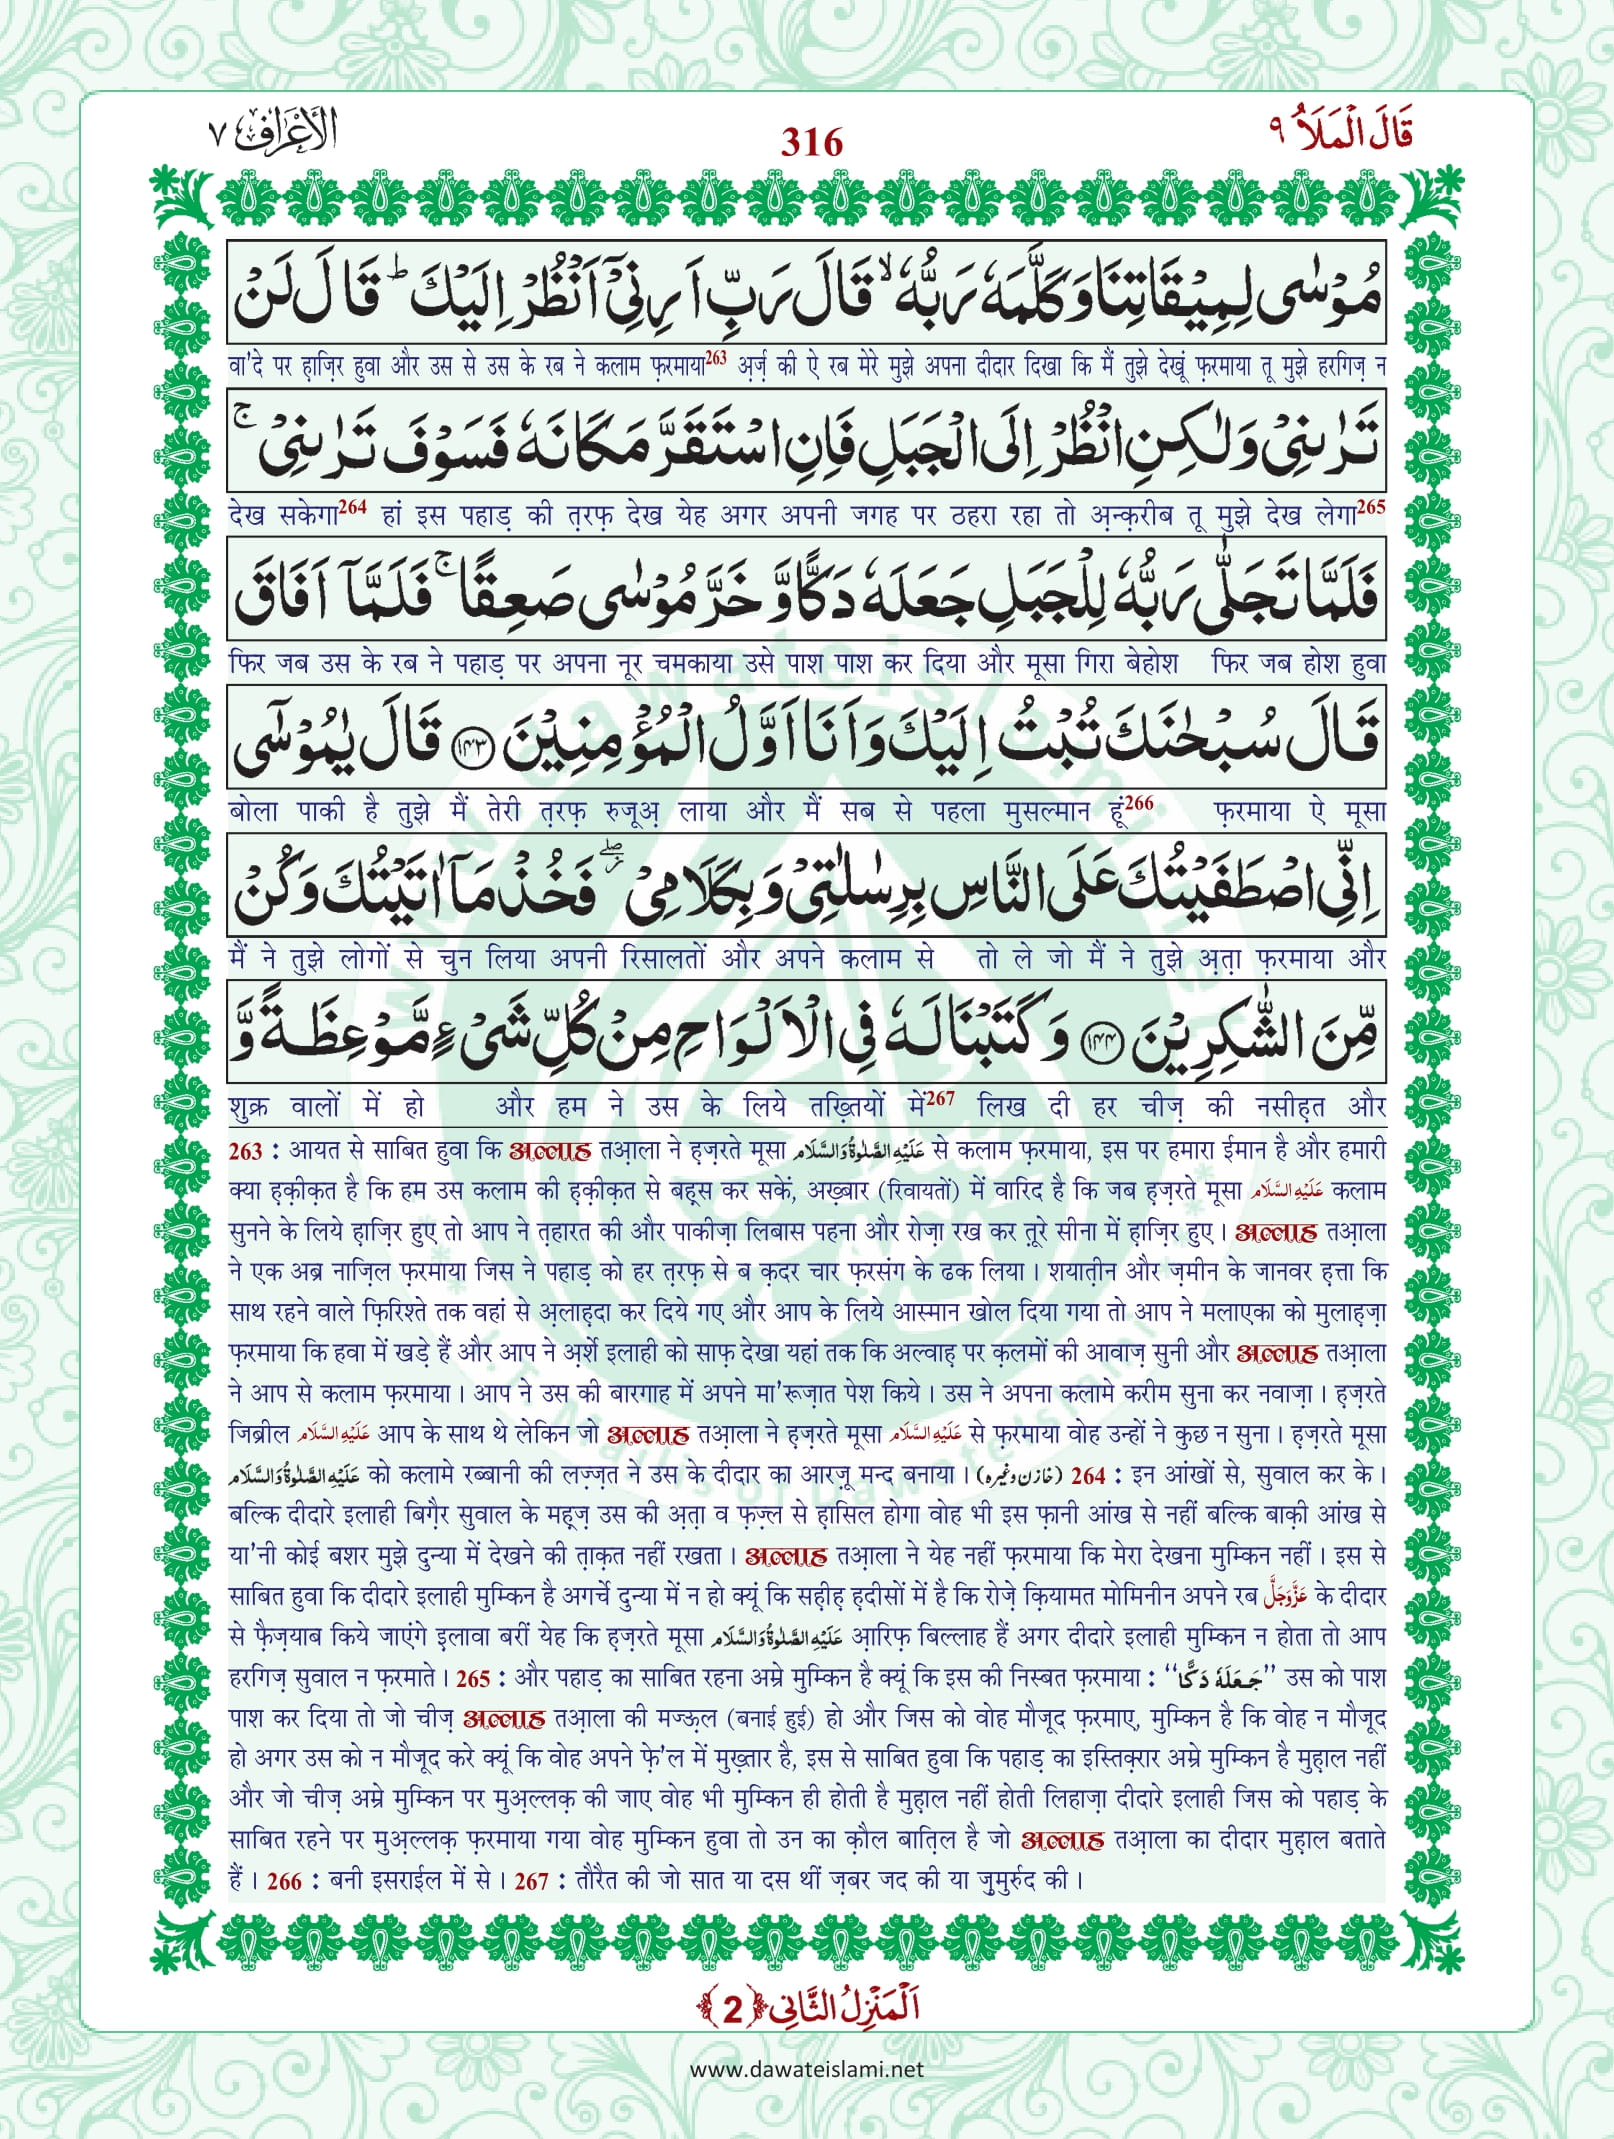 الاعراف ٧
316
قَالَ الْمَلَاُ ٩
مُوْسٰى لِمِیْقَاتِنَا وَ كَلَّمَهٗ رَبُّهٗۙ قَالَ رَبِّ اَرِنِیْۤ اَنْظُرْ اِلَیْكَؕ قَالَ لَنْ
वा'दे पर ह़ाज़िर हुवा और उस से उस के रब ने कलाम फ़रमाया263 अ़र्ज़ की ऐ रब मेरे मुझे अपना दीदार दिखा कि मैं तुझे देखूं फ़रमाया तू मुझे हरगिज़ न
تَرٰىنِیْ وَ لٰكِنِ انْظُرْ اِلَى الْجَبَلِ فَاِنِ اسْتَقَرَّ مَكَانَهٗ فَسَوْفَ تَرٰىنِیْۚ
देख सकेगा264 हां इस पहाड़ की त़रफ़ देख येह अगर अपनी जगह पर ठहरा रहा तो अ़न्क़रीब तू मुझे देख लेगा265
فَلَمَّا تَجَلّٰى رَبُّهٗ لِلْجَبَلِ جَعَلَهٗ دَكًّا وَّ خَرَّ مُوْسٰى صَعِقًاۚ فَلَمَّاۤ اَفَاقَ
फिर जब उस के रब ने पहाड़ पर अपना नूर चमकाया उसे पाश पाश कर दिया और मूसा गिरा बेहोश फिर जब होश हुवा
قَالَ سُبْحٰنَكَ تُبْتُ اِلَیْكَ وَ اَنَا اَوَّلُ الْمُؤْمِنِیْنَ ﴿۱۴۳﴾ قَالَ یٰمُوْسٰۤى
बोला पाकी है तुझे मैं तेरी त़रफ़ रुजूअ़ लाया और मैं सब से पहला मुसल्मान हूं266 फ़रमाया ऐ मूसा
اِنِّی اصْطَفَیْتُكَ عَلَى النَّاسِ بِرِسٰلٰتِیْ وَ بِكَلَامِیْ ﳲ فَخُذْ مَاۤ اٰتَیْتُكَ وَ كُنْ
मैं ने तुझे लोगों से चुन लिया अपनी रिसालतों और अपने कलाम से तो ले जो मैं ने तुझे अ़त़ा फ़रमाया और
مِّنَ الشّٰكِرِیْنَ ﴿۱۴۴﴾ وَ كَتَبْنَا لَهٗ فِی الْاَلْوَاحِ مِنْ كُلِّ شَیْءٍ مَّوْعِظَةً وَّ
शुक्र वालों में हो और हम ने उस के लिये तख़्तियों में267 लिख दी हर चीज़ की नसीह़त और
263 : आयत से साबित हुवा कि अल्लाह तआ़ला ने ह़ज़रते मूसा عَلَیْهِ الصَّلٰوةُ وَالسَّلَام से कलाम फ़रमाया, इस पर हमारा ईमान है और हमारी
क्या ह़क़ीक़त है कि हम उस कलाम की ह़क़ीक़त से बह़्स कर सकें, अख़्बार (रिवायतों) में वारिद है कि जब ह़ज़रते मूसा عَلَیْهِ السَّلَام कलाम
सुनने के लिये ह़ाज़िर हुए तो आप ने त़हारत की और पाकीज़ा लिबास पहना और रोज़ा रख कर त़ूरे सीना में ह़ाज़िर हुए। अल्लाह तआ़ला
ने एक अब्र नाज़िल फ़रमाया जिस ने पहाड़ को हर त़रफ़ से ब क़दर चार फ़रसंग के ढक लिया। शयात़ीन और ज़मीन के जानवर ह़त्ता कि
साथ रहने वाले फ़िरिश्ते तक वहां से अ़लाह़दा कर दिये गए और आप के लिये आस्मान खोल दिया गया तो आप ने मलाएका को मुलाह़ज़ा
फ़रमाया कि हवा में खड़े हैं और आप ने अ़र्शे इलाही को साफ़ देखा यहां तक कि अल्वाह़ पर क़लमों की आवाज़ सुनी और अल्लाह तआ़ला
ने आप से कलाम फ़रमाया। आप ने उस की बारगाह में अपने मा'रूज़ात पेश किये। उस ने अपना कलामे करीम सुना कर नवाज़ा। ह़ज़रते
जिब्रील عَلَیْهِ السَّلَام आप के साथ थे लेकिन जो अल्लाह तआ़ला ने ह़ज़रते मूसा عَلَیْهِ السَّلَام से फ़रमाया वोह उन्हों ने कुछ न सुना। ह़ज़रते मूसा
عَلَیْهِ الصَّلٰوةُ وَالسَّلَام को कलामे रब्बानी की लज़्ज़त ने उस के दीदार का आरज़ू मन्द बनाया। (خازن وغیرہ) 264 : इन आंखों से, सुवाल कर के।
बल्कि दीदारे इलाही बिग़ैर सुवाल के मह़ूज़ उस की अ़त़ा व फ़ज़्ल से ह़ासिल होगा वोह भी इस फ़ानी आंख से नहीं बल्कि बाक़ी आंख से
या'नी कोई बशर मुझे दुन्या में देखने की त़ाक़त नहीं रखता। अल्लाह तआ़ला ने येह नहीं फ़रमाया कि मेरा देखना मुम्किन नहीं। इस से
साबित हुवा कि दीदारे इलाही मुम्किन है अगर्चे दुन्या में न हो क्यूं कि सह़ीह़ ह़दीसों में है कि रोज़े क़ियामत मोमिनीन अपने रब عَزَّوَجَلَّ के दीदार
से फ़ैज़याब किये जाएंगे इलावा बरीं येह कि ह़ज़रते मूसा عَلَیْهِ الصَّلٰوةُ وَالسَّلَام आ़रिफ़ बिल्लाह हैं अगर दीदारे इलाही मुम्किन न होता तो आप
हरगिज़ सुवाल न फ़रमाते। 265 : और पहाड़ का साबित रहना अम्रे मुम्किन है क्यूं कि इस की निस्बत फ़रमाया : ‘‘جَعَلَهٗ دَكًّا’’ उस को पाश
पाश कर दिया तो जो चीज़ अल्लाह तआ़ला की मज्ऊ़ल (बनाई हुई) हो और जिस को वोह मौजूद फ़रमाए, मुम्किन है कि वोह न मौजूद
हो अगर उस को न मौजूद करे क्यूं कि वोह अपने फ़े'ल में मुख़्तार है, इस से साबित हुवा कि पहाड़ का इस्तिक़्रार अम्रे मुम्किन है मुह़ाल नहीं
और जो चीज़ अम्रे मुम्किन पर मुअ़ल्लक़ की जाए वोह भी मुम्किन ही होती है मुह़ाल नहीं होती लिहाज़ा दीदारे इलाही जिस को पहाड़ के
साबित रहने पर मुअ़ल्लक़ फ़रमाया गया वोह मुम्किन हुवा तो उन का क़ौल बात़िल है जो अल्लाह तआ़ला का दीदार मुह़ाल बताते
हैं। 266 : बनी इसराईल में से। 267 : तौरैत की जो सात या दस थीं ज़बर जद की या ज़ुमुर्रुद की।
اَلْمَنْزِلُ الثَّانِی ﴿2﴾
www.dawateislami.net